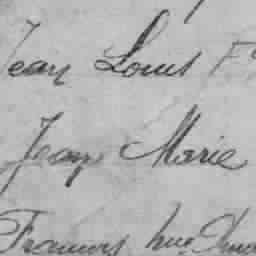 Jean Louis F
Jean Marie
Francois